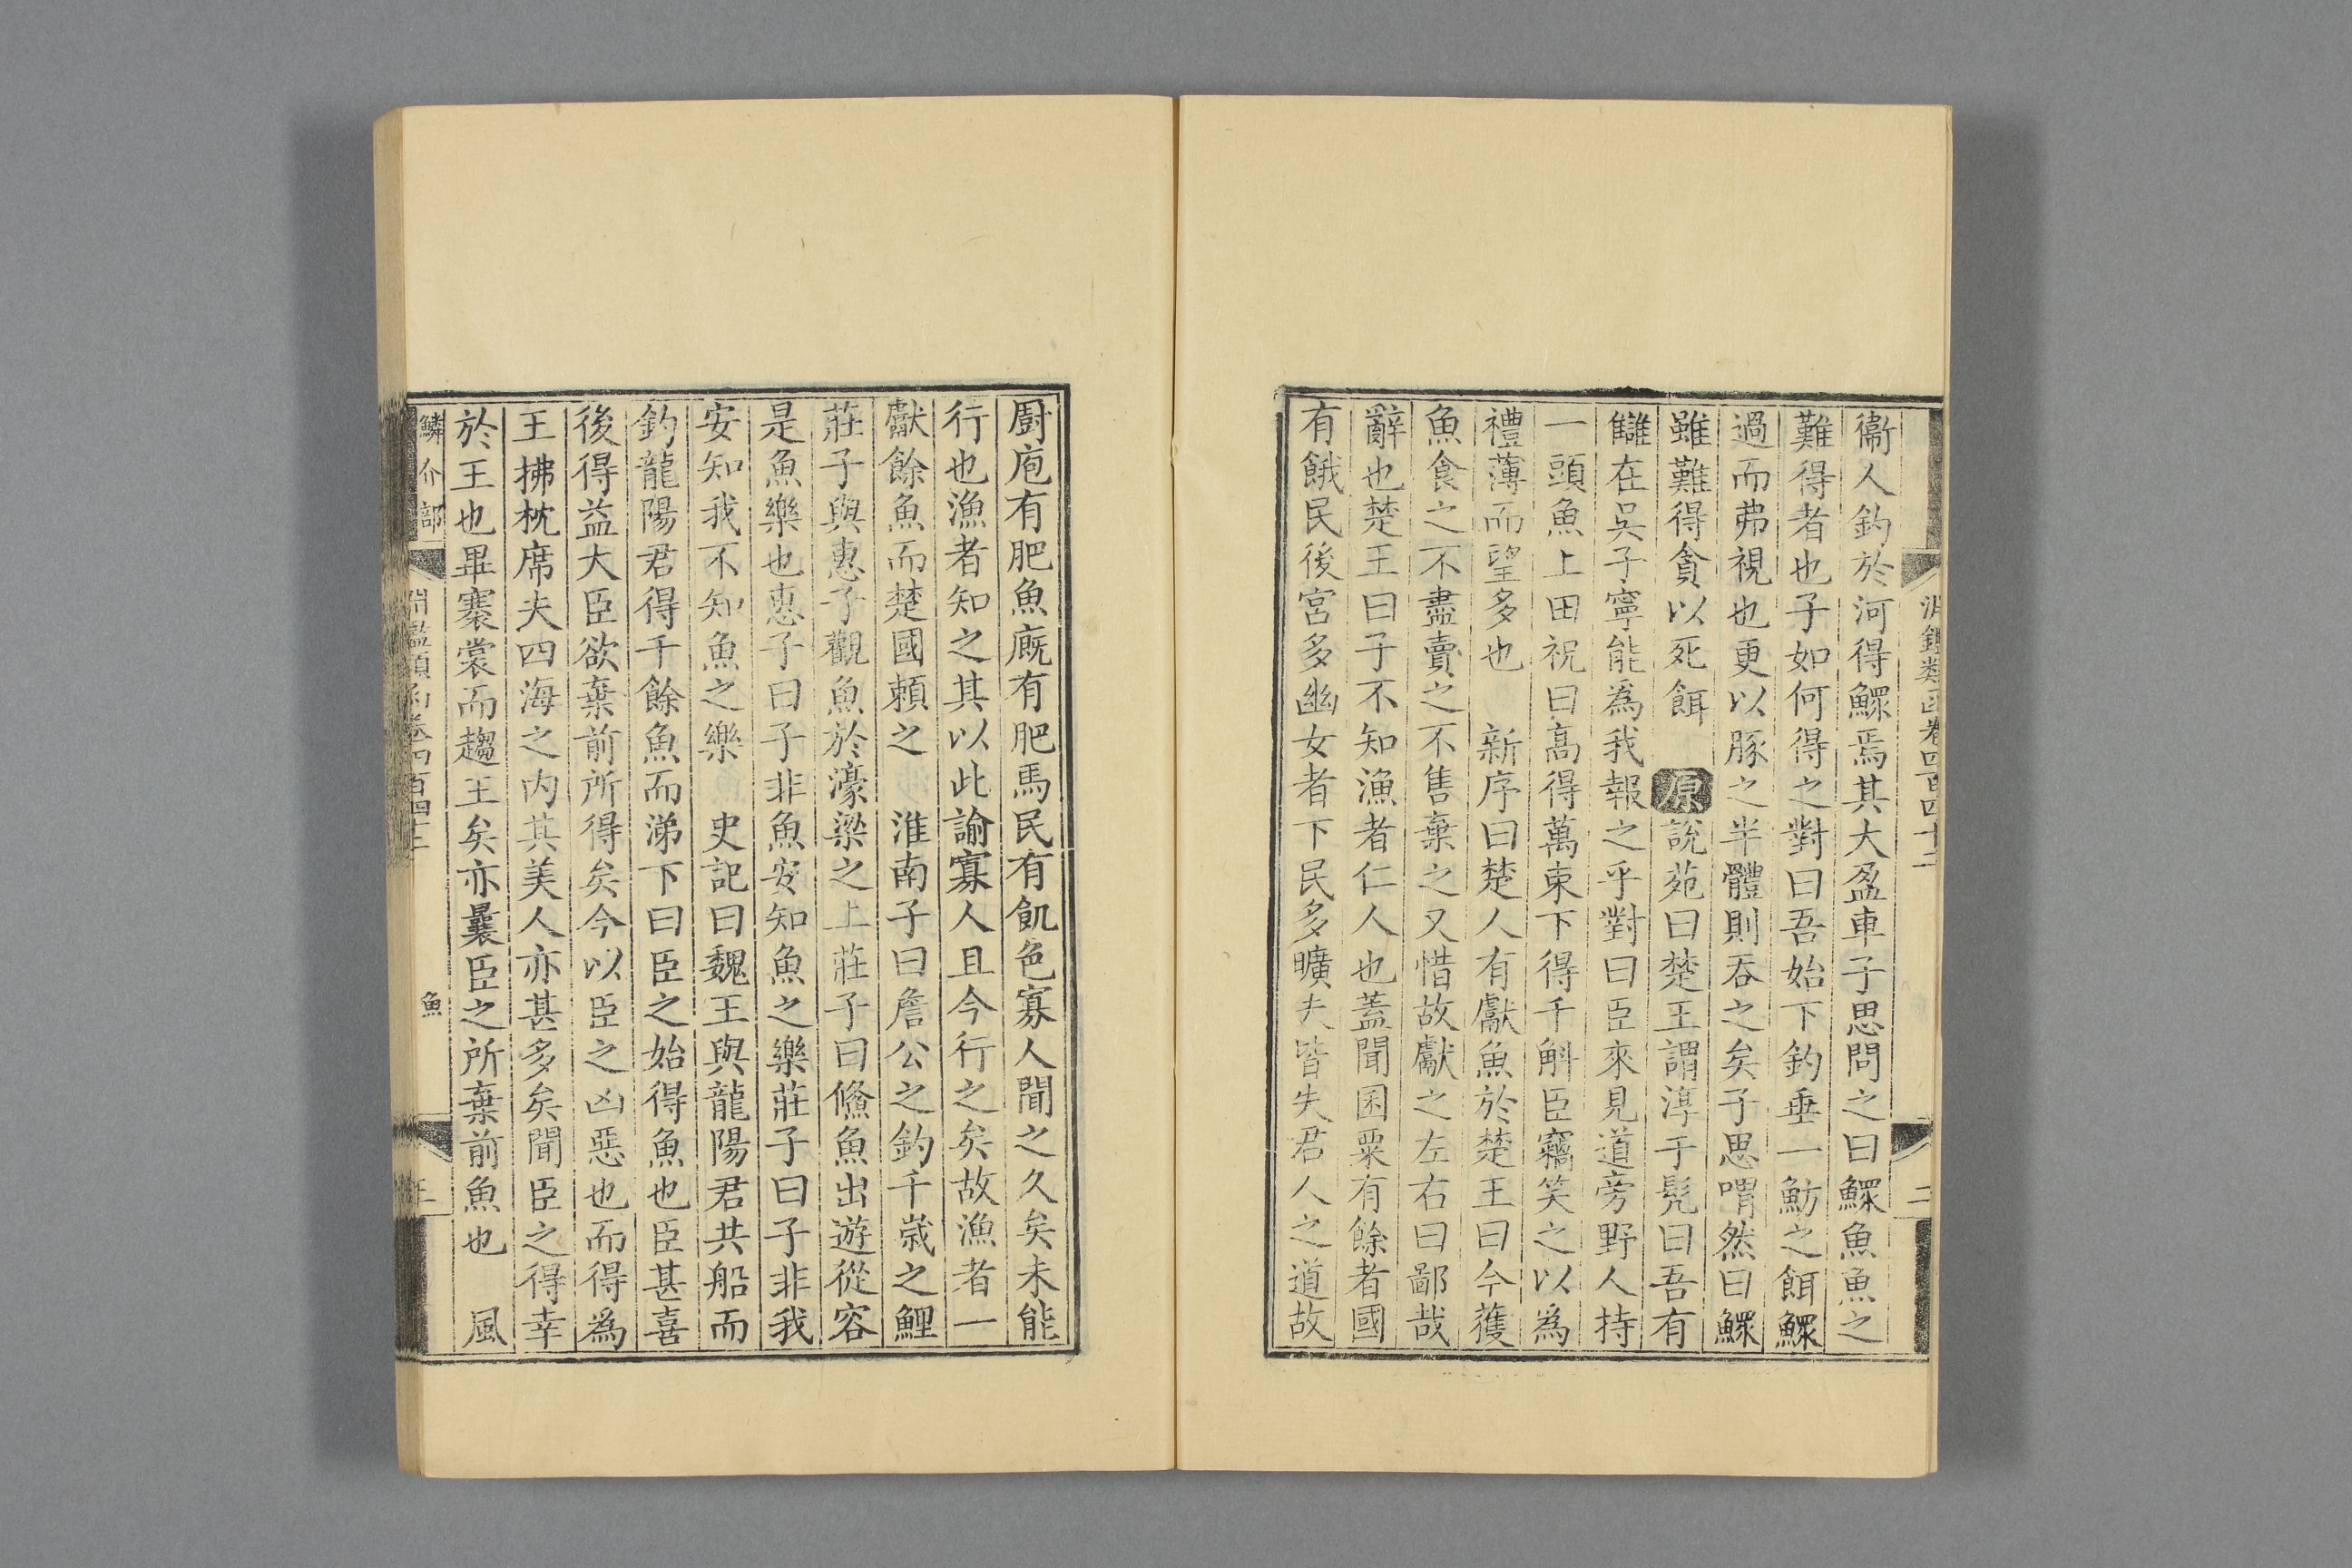 衞人釣於河得鰥焉其大盈車子思問之曰鰥魚魚之
難得者也子如何得之對曰吾始下釣垂一魴之餌鰥
過而弗視也更以豚之半體則吞之矣子思喟然曰鰥
雖難得貪以死餌 原說苑曰楚王謂淳于髡曰吾有
讎在吳子寧能爲我報之乎對曰臣來見道旁野人持
一頭魚上田祝曰高得萬束下得千斛臣竊笑之以爲
禮薄而望多也 新序曰楚人有獻魚於楚王曰今獲
魚食之不盡賣之不售棄之又惜故獻之左右曰鄙哉
辭也楚王曰子不知漁者仁人也蓋聞囷粟有餘者國
有餓民後宮多幽女者下民多曠夫皆失君人之道故
廚庖有肥魚廐有肥馬民有飢色寡人聞之久矣未能
行也漁者知之其以此諭寡人且今行之矣故漁者一
獻餘魚而楚國賴之 淮南子曰詹公之釣千歲之鯉
莊子與惠子觀魚於濠梁之上莊子曰鯈魚出遊從容
是魚樂也惠子曰子非魚安知魚之樂莊子曰子非我
安知我不知魚之樂 史記曰魏王與龍陽君共船而
釣龍陽君得千餘魚而涕下曰臣之始得魚也臣甚喜
後得益大臣欲棄前所得矣今以臣之凶惡也而得爲
王拂枕席夫四海之内其美人亦甚多矣聞臣之得幸
於王也畢褰裳而趨王矣亦曩臣之所棄前魚也 風
鱗介部 魚